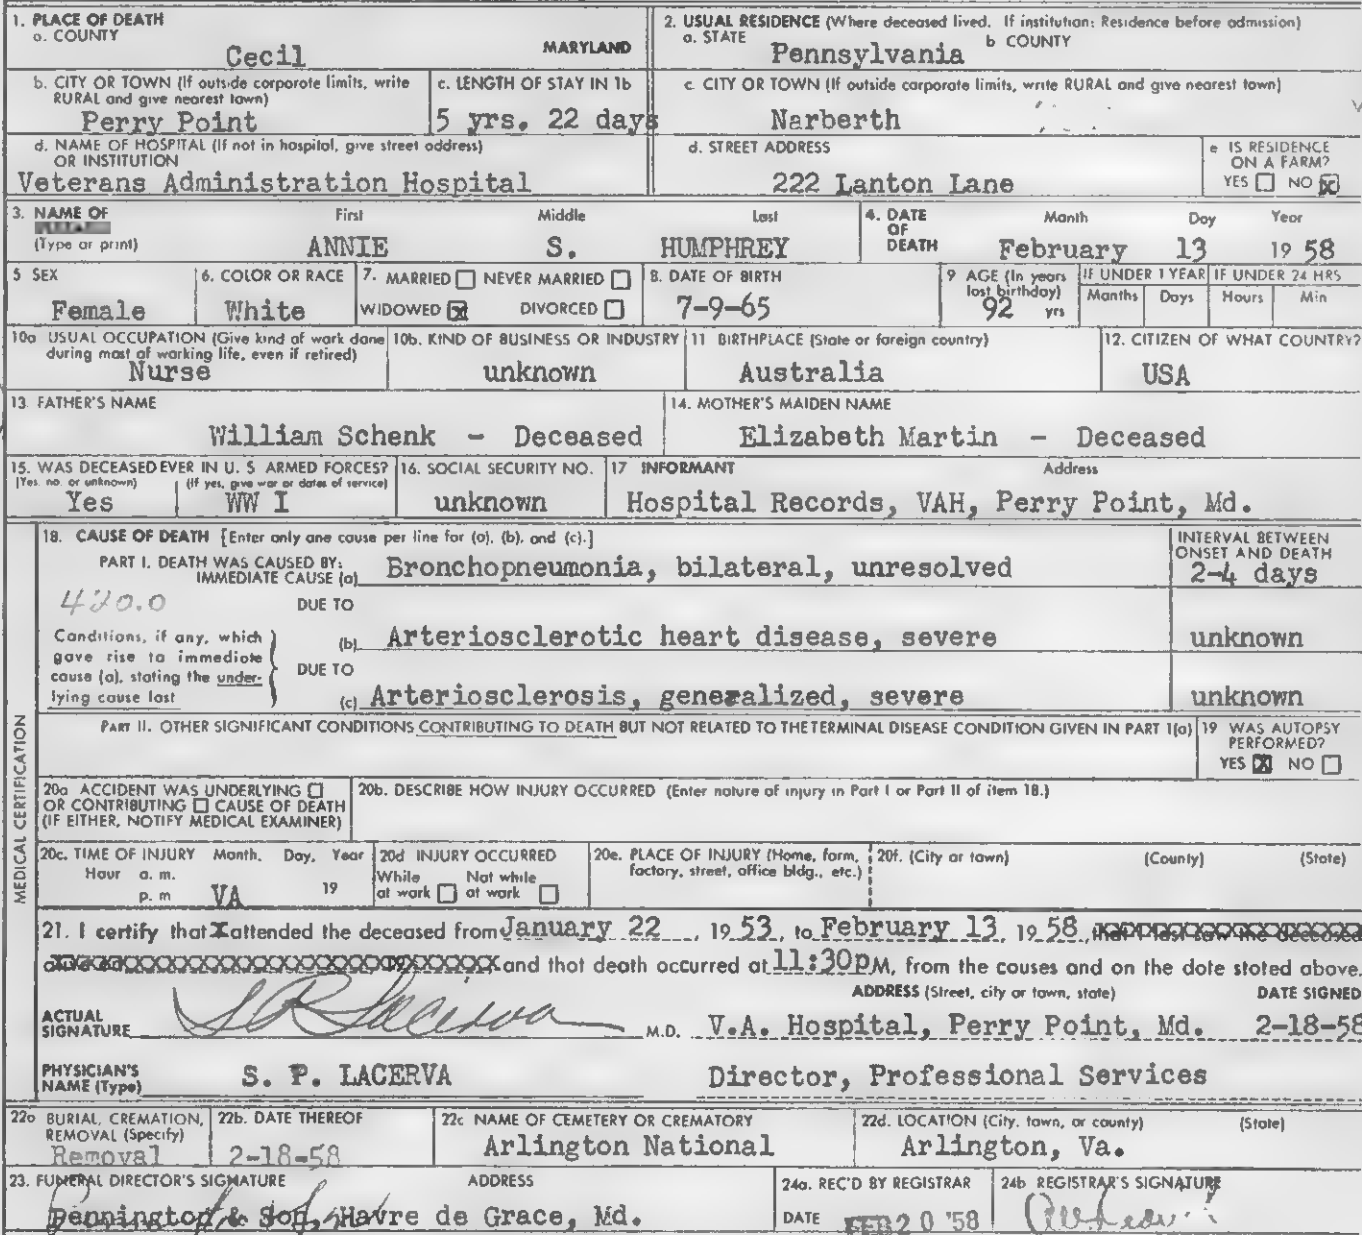 1. PLACE OF DEATH
a. COUNTY
Cecil
MARYLAND
2. USUAL RESIDENCE (Where deceased lived. If institution: Residence before admission)
a. STATE
Pennsylvania
b COUNTY
b. CITY OR TOWN (If outside corporate limits, write
RURAL and give nearest town)
Perry Point
c. LENGTH OF STAY IN 1b
5 yrs. 22 days
c CITY OR TOWN (If outside corporate limits, write RURAL and give nearest town)
Narberth
d. NAME OF HOSPITAL (If not in hospital, give street address)
OR INSTITUTION
Veterans Administration Hospital
d. STREET ADDRESS
222 Lanton Lane
e IS RESIDENCE
ON A FARM?
YES NO X
3. NAME OF
(Type or print)
First Middle Last
ANNIE S. HUMPHREY
4. DATE
OF
DEATH
Month Day Year
February 13 19 58
5 SEX
Female
6. COLOR OR RACE
White
7. MARRIED NEVER MARRIED
WIDOWED X DIVORCED
8. DATE OF BIRTH
7-9-65
9 AGE (In years
last birthday)
92 yrs
IF UNDER 1 YEAR
Months Days
IF UNDER 24 HRS
Hours Min
10a USUAL OCCUPATION (Give kind of work done
during most of working life, even if retired)
Nurse
10b. KIND OF BUSINESS OR INDUSTRY
unknown
11 BIRTHPLACE (State or foreign country)
Australia
12. CITIZEN OF WHAT COUNTRY?
USA
13. FATHER'S NAME
William Schenk - Deceased
14. MOTHER'S MAIDEN NAME
Elizabeth Martin - Deceased
15. WAS DECEASED EVER IN U. S ARMED FORCES?
(Yes. no. or unknown) (If yes, give war or dates of service)
Yes WW I
16. SOCIAL SECURITY NO.
unknown
17 INFORMANT Address
Hospital Records, VAH, Perry Point, Md.
MEDICAL CERTIFICATION
18. CAUSE OF DEATH [Enter only one cause per line for (a), (b), and (c).]
INTERVAL BETWEEN
ONSET AND DEATH
PART I. DEATH WAS CAUSED BY:
IMMEDIATE CAUSE (a) Bronchopneumonia, bilateral, unresolved
2-4 days
420.0
DUE TO
Conditions, if any, which
gave rise to immediate
cause (a), stating the under-
lying cause last
(b) Arteriosclerotic heart disease, severe
unknown
DUE TO
(c) Arteriosclerosis, generalized, severe
unknown
PART II. OTHER SIGNIFICANT CONDITIONS CONTRIBUTING TO DEATH BUT NOT RELATED TO THE TERMINAL DISEASE CONDITION GIVEN IN PART 1(a)
19 WAS AUTOPSY
PERFORMED?
YES X NO
20a ACCIDENT WAS UNDERLYING
OR CONTRIBUTING CAUSE OF DEATH
(IF EITHER, NOTIFY MEDICAL EXAMINER)
20b. DESCRIBE HOW INJURY OCCURRED (Enter nature of injury in Part I or Part II of item 18.)
20c. TIME OF INJURY Month, Day, Year
Hour a. m.
p. m VA 19
20d INJURY OCCURRED
While Not while
at work at work
20e. PLACE OF INJURY (Home, farm,
factory, street, office bldg., etc.)
20f. (City or town) (County) (State)
21. I certify that X attended the deceased from January 22, 19 53, to February 13, 19 58, that I last saw the deceased
and that death occurred at 11:30p M, from the causes and on the date stated above.
ADDRESS (Street, city or town, state) DATE SIGNED
ACTUAL
SIGNATURE S P Lacerva M.D. V.A. Hospital, Perry Point, Md. 2-18-58
PHYSICIAN'S
NAME (Type) S. P. LACERVA
Director, Professional Services
22a BURIAL, CREMATION,
REMOVAL (Specify)
Removal
22b. DATE THEREOF
2-18-58
22c NAME OF CEMETERY OR CREMATORY
Arlington National
22d. LOCATION (City, town, or county) (State)
Arlington, Va.
23. FUNERAL DIRECTOR'S SIGNATURE ADDRESS
Pennington & Son, Havre de Grace, Md.
24a. REC'D BY REGISTRAR
DATE FEB 20 '58
24b REGISTRAR'S SIGNATURE